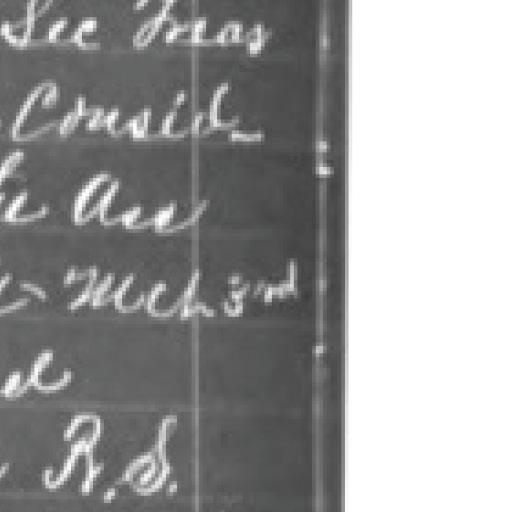 Sec Treas
Consid
Ass
Mch 3rd
R.S.